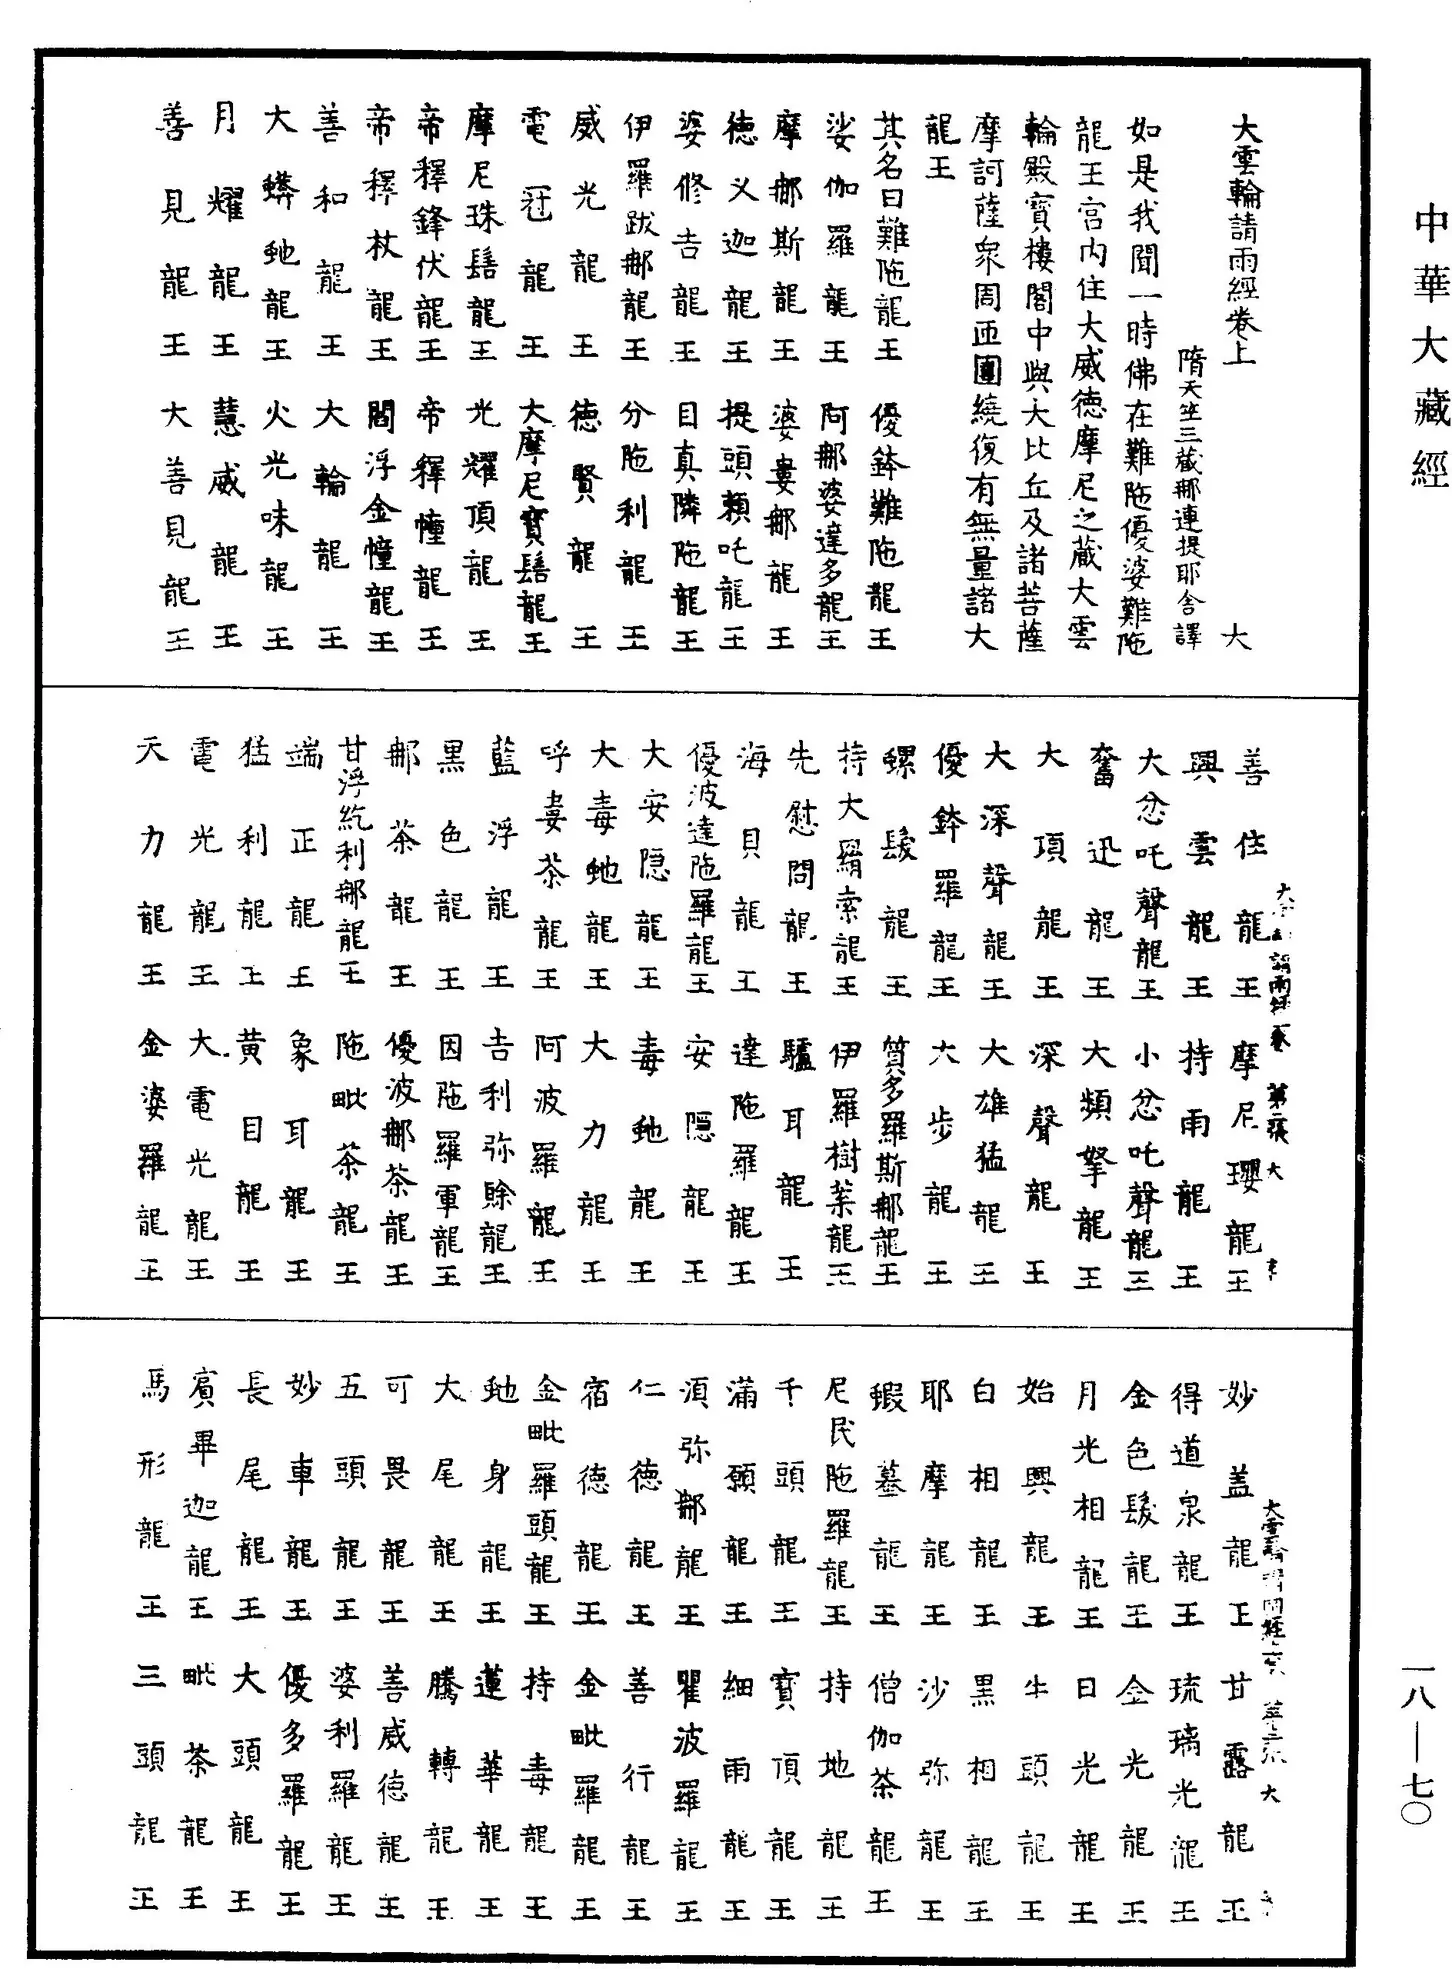 中華大藏經
大雲輪請雨經卷上 大
隋天竺三藏那連提耶舍譯
如是我聞一時佛在難陁優婆難陁
龍王宮內住大威德摩尼之藏大雲
輪殿寶樓閣中與大比丘及諸菩薩
摩訶薩衆周匝圍繞復有無量諸大
龍王
其名曰難陁龍王 優鉢難陁龍王
娑伽羅龍王 阿那婆達多龍王
摩那斯龍王 婆婁那龍王
德义迦龍王 提頭賴吒龍王
婆修吉龍王 目真隣陁龍王
伊羅跋那龍王 分陁利龍王
威光龍王 德賢龍王
電冠龍王 大摩尼寶髻龍王
摩尼珠髻龍王 光耀頂龍王
帝釋鋒伏龍王 帝釋幢龍王
帝釋杖龍王 閻浮金幢龍王
善和龍王 大輪龍王
大蟒虵龍王 火光味龍王
月耀龍王 慧威龍王
善見龍王 大善見龍王
善住龍王 摩尼瓔龍王
興雲龍王 持雨龍王
大忿吒聲龍王 小忿吒聲龍王
奮迅龍王 大頻拏龍王
大項龍王 深聲龍王
大深聲龍王 大雄猛龍王
優鉢羅龍王 大步龍王
螺髮龍王 質多羅斯那龍王
持大羂索龍王 伊羅樹葉龍王
先慰問龍王 驢耳龍王
海貝龍王 達陁羅龍王
優波達陁羅龍王 安隱龍王
大安隱龍王 毒虵龍王
大毒虵龍王 大力龍王
呼婁茶龍王 阿波羅龍王
藍浮龍王 吉利弥賒龍王
黑色龍王 因陁羅軍龍王
那茶龍王 優波那茶龍王
甘浮紇利那龍王 陁毗茶龍王
端正龍王 象耳龍王
猛利龍王 黄目龍王
電光龍王 大電光龍王
天力龍王 金婆羅龍王
妙盖龍王 甘露龍王
得道泉龍王 琉璃光龍王
金色髮龍王 金光龍王
月光相龍王 日光龍王
始興龍王 牛頭龍王
白相龍王 黑相龍王
耶摩龍王 沙弥龍王
蝦蟇龍王 僧伽茶龍王
尼民陁羅龍王 持地龍王
千頭龍王 寶頂龍王
滿願龍王 細雨龍王
須弥那龍王 瞿波羅龍王
仁德龍王 善行龍王
宿德龍王 金毗羅龍王
金毗羅頭龍王 持毒龍王
虵身龍王 蓮華龍王
大尾龍王 騰轉龍王
可畏龍王 善威德龍王
五頭龍王 婆利羅龍王
妙車龍王 優多羅龍王
長尾龍王 大頭龍王
賓畢迦龍王 毗茶龍王
馬形龍王 三頭龍王
一八—七〇